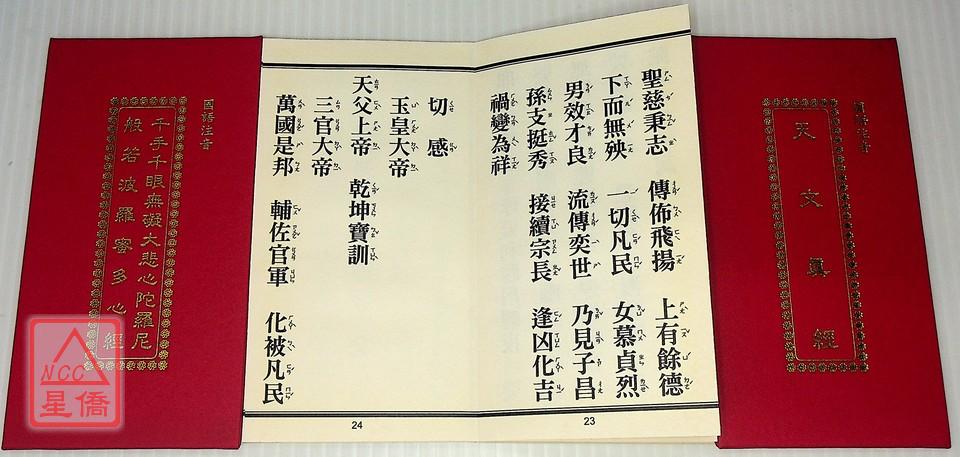 國語注音
天文真經
聖慈秉志 傳佈飛揚 上有餘德
下而無殃 一切凡民 女慕貞烈
男效才良 流傳奕世 乃見子昌
孫支挺秀 接續宗長 逢凶化吉
禍變為祥
23
切感
玉皇大帝
天父上帝 乾坤寶訓
三官大帝
萬國是邦 輔佐官軍 化被凡民
24
國語注音
千手千眼無礙大悲心陀羅尼
般若波羅密多心經
NCC
星僑